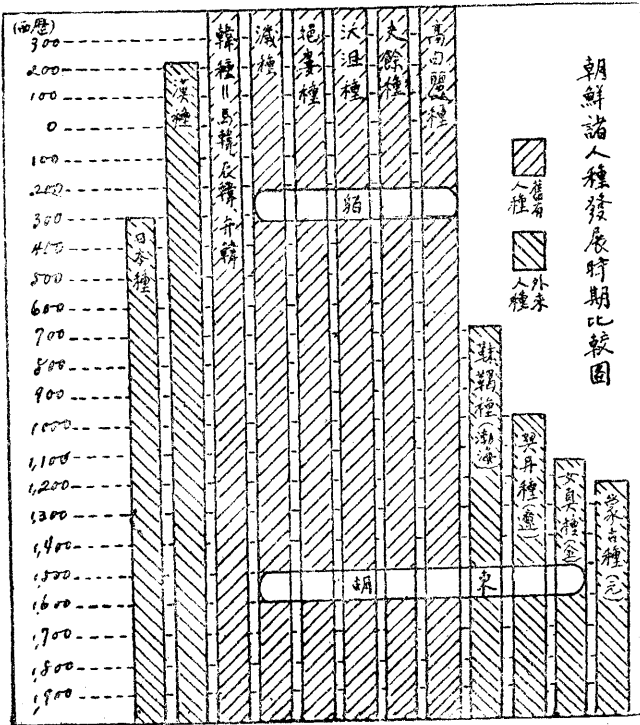 朝鮮諸人種發展時期比較圖
舊有人種
外来人種
(西歷)
300
200
100
0
100
200
300
400
500
600
700
800
900
1,000
1,100
1,200
1,300
1,400
1,500
1,600
1,700
1,800
1,900
日本種
漢種
韓種=馬韓 辰韓 弁韓
濊種
挹婁種
沃沮種
夫餘種
高句麗種
貊
靺鞨種(渤海)
契丹種(遼)
女真種(金)
蒙古種(元)
東胡